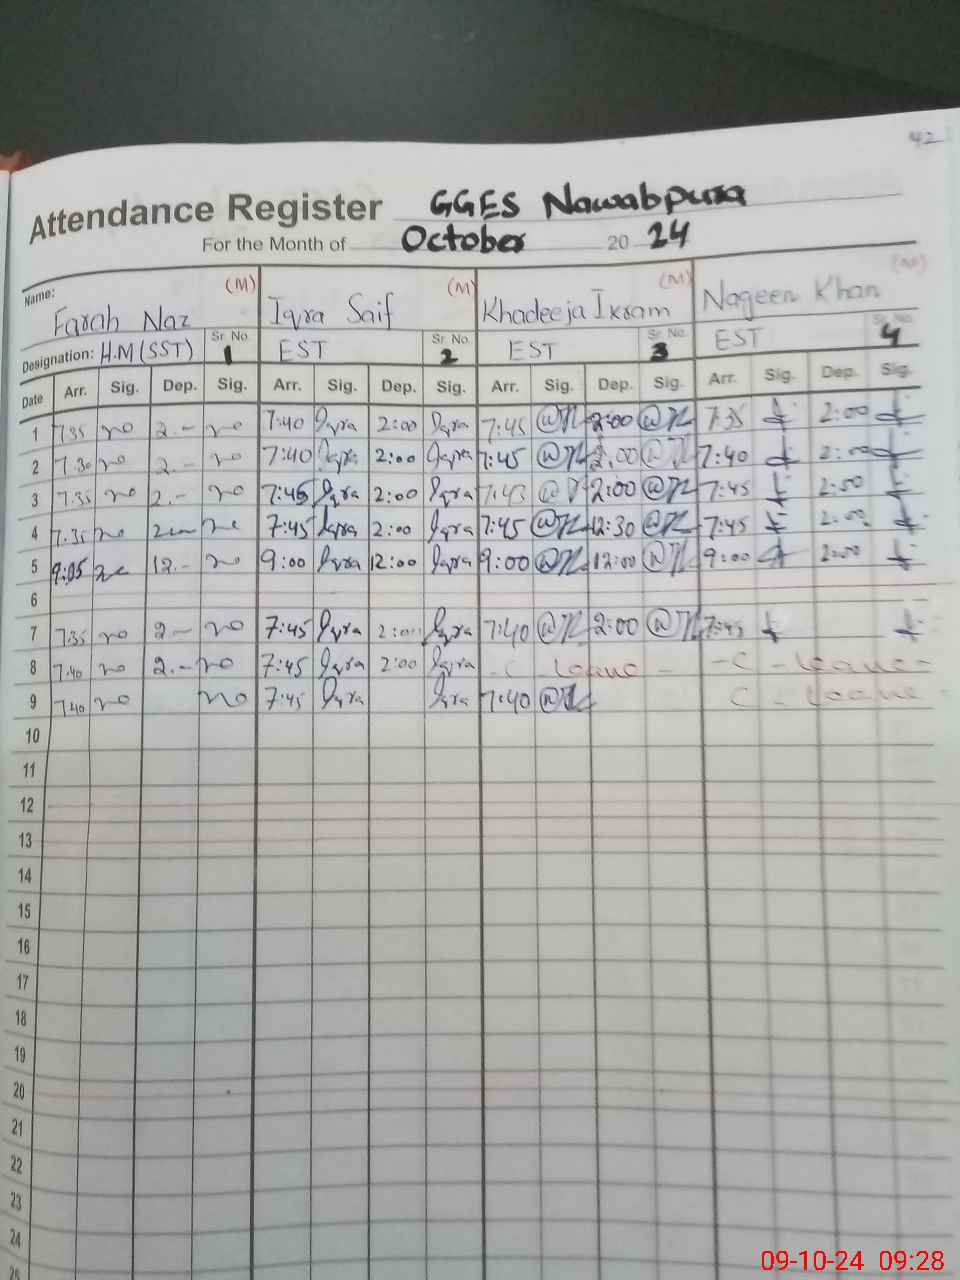 42
Attendance Register GGES Nawabpura
For the Month of October 20 24
Name: Farah Naz (M) Iqra Saif (M) Khadeeja Ikram (M) Nageen Khan (M)
Designation: H.M (SST) Sr. No. 1 EST Sr. No. 2 EST Sr. No. 3 EST Sr. No. 4
Date Arr. Sig. Dep. Sig. Arr. Sig. Dep. Sig. Arr. Sig. Dep. Sig. Arr. Sig. Dep. Sig.
1 7.35 2.- 7:40 Iqra 2:00 Iqra 7:45 2:00 7:35 2:00
2 7.30 2.- 7:40 Iqra 2:00 Iqra 7:45 2:00 7:40 2:00
3 7.35 2.- 7:45 Iqra 2:00 Iqra 7:43 2:00 7:45 2:00
4 7.35 7:45 Iqra 2:00 Iqra 7:45 12:30 7:45 2:00
5 9:05 12.- 9:00 Iqra 12:00 Iqra 9:00 12:00 9:00
6
7 7.35 2.- 7:45 Iqra 2:00 Iqra 7:40 2:00 7:45
8 7.40 2.- 7:45 Iqra 2:00 Iqra - C - leave - - C - leave -
9 7.40 7:45 Iqra Iqra 7:40 C - leave -
10
11
12
13
14
15
16
17
18
19
20
21
22
23
24
25
09-10-24 09:28